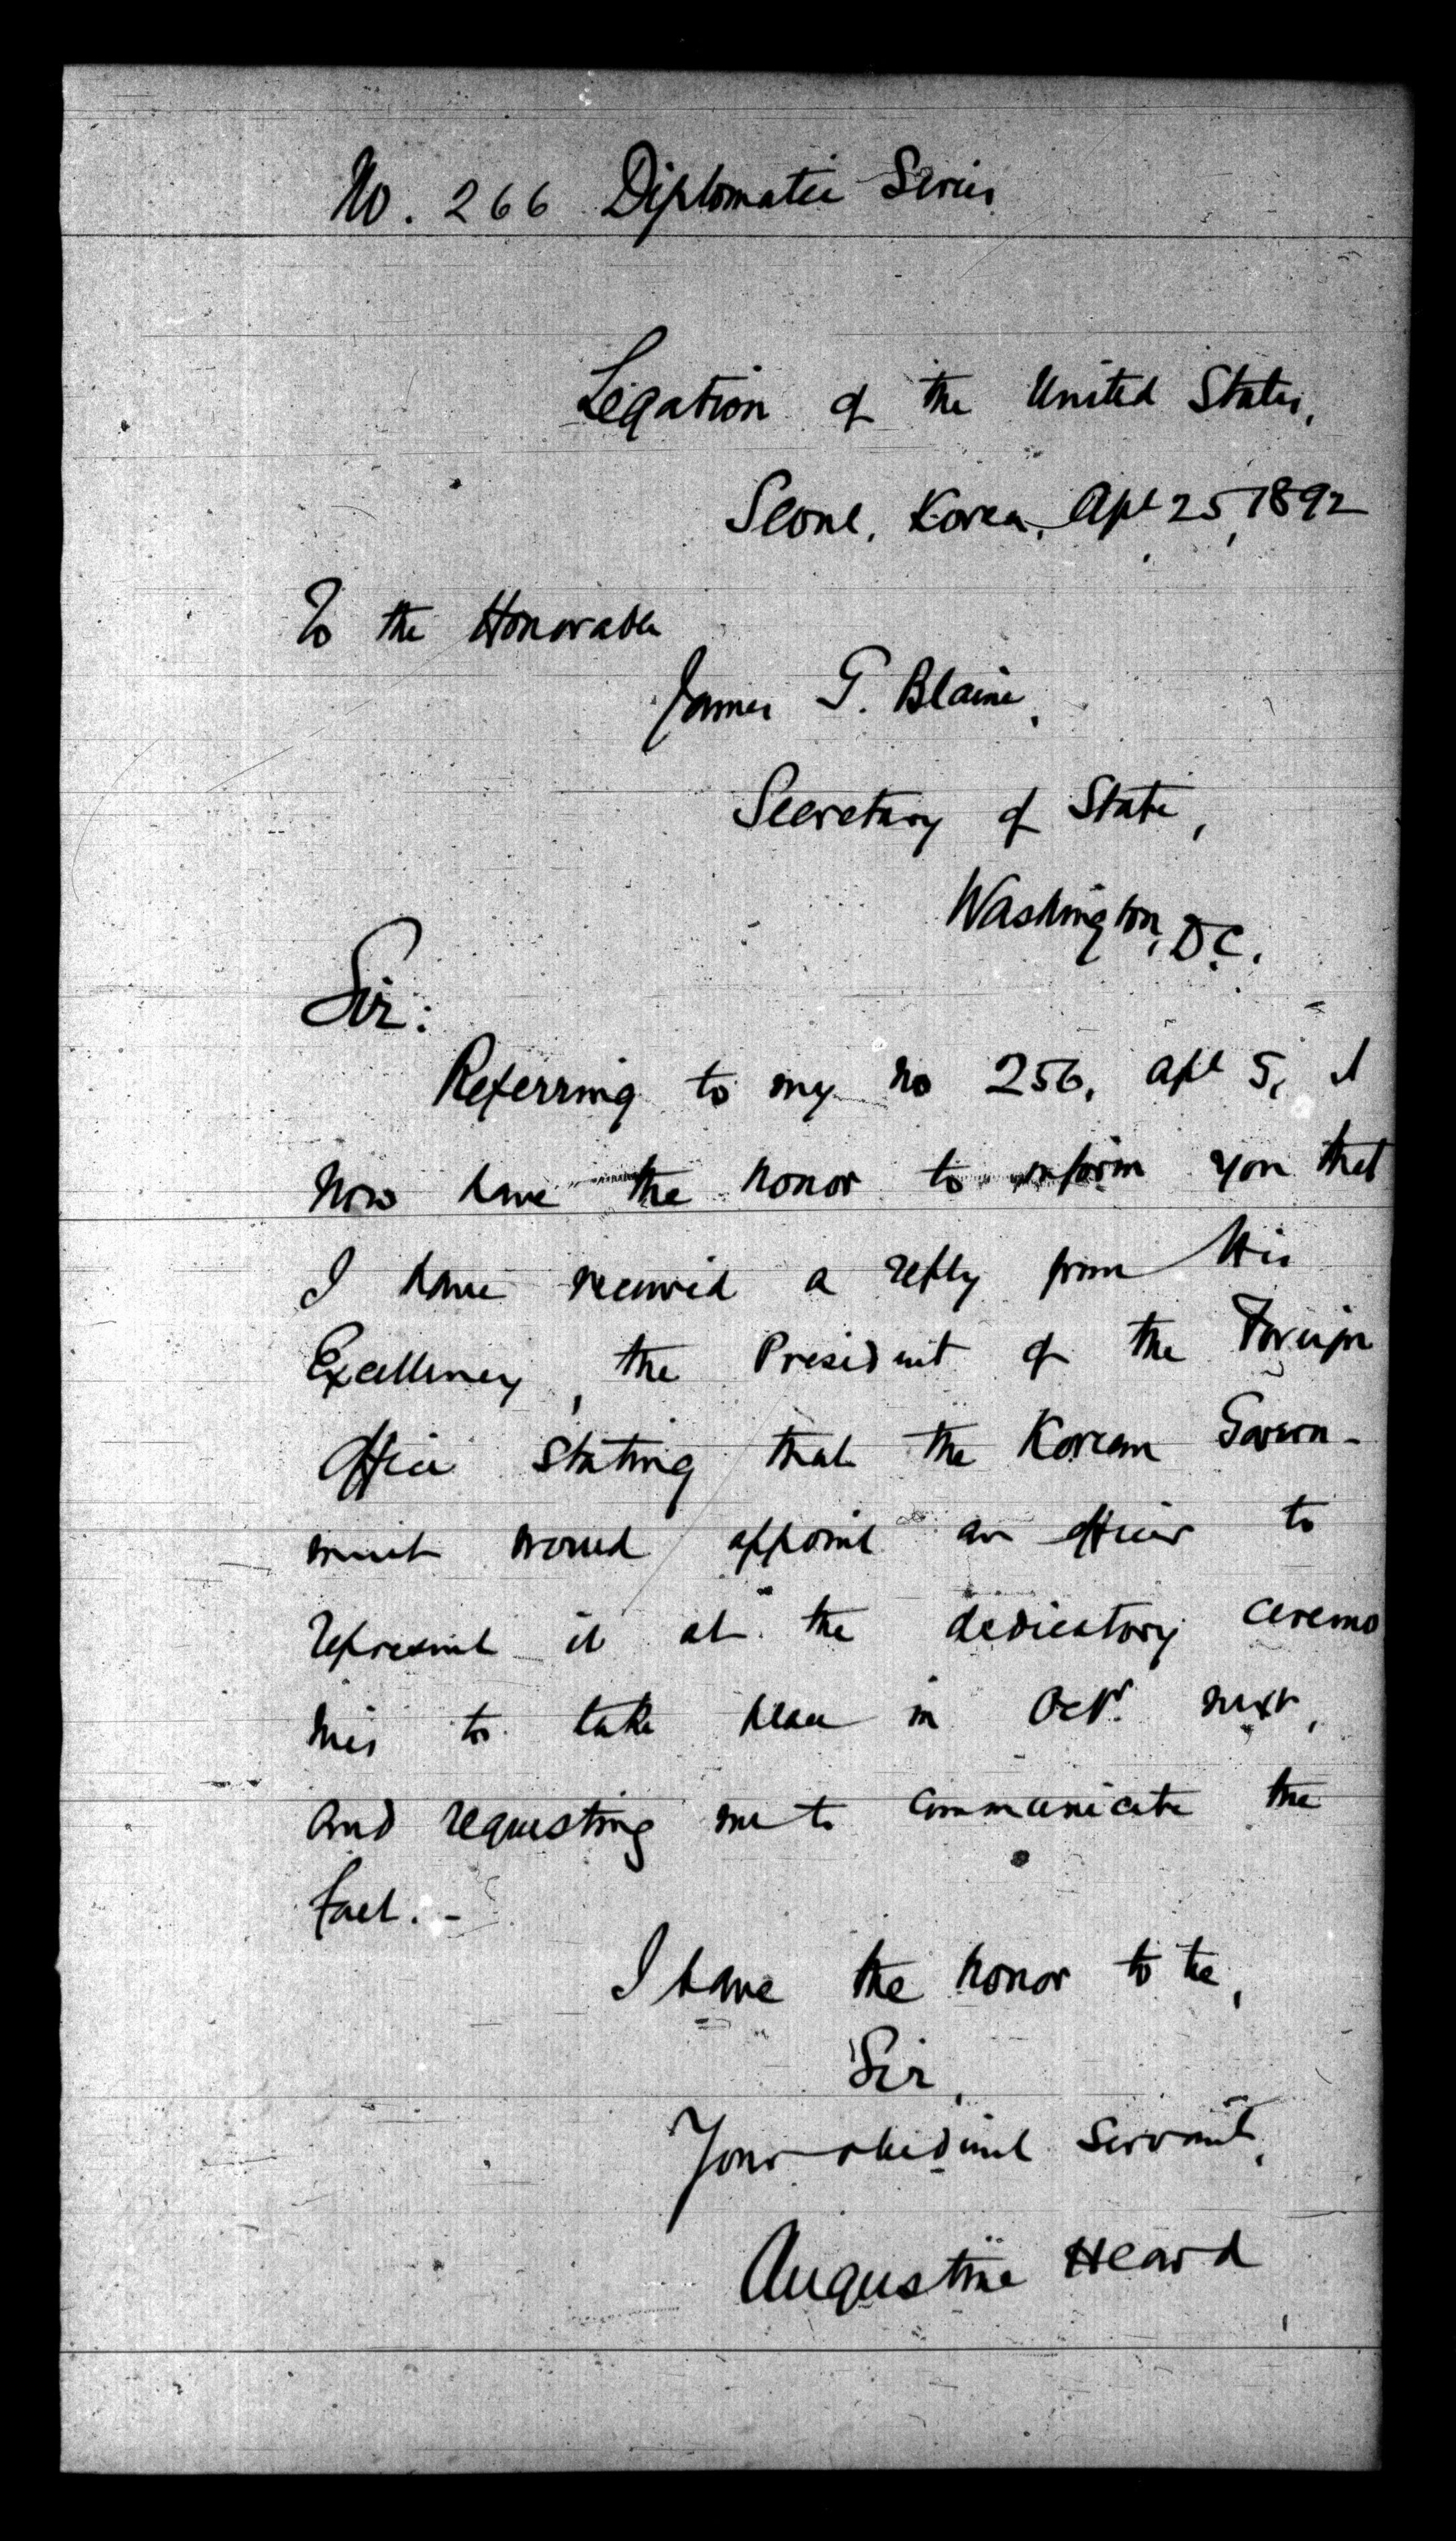 No. 266 Diplomatic Series
Legation of the United States,
Seoul, Korea, Apl 25, 1892
To the Honorable
James G. Blaine,
Secretary of State,
Washington, D.C.
Sir:
Referring to my no 256, Apl 5, I
now have the honor to inform you that
I have received a reply from His
Excellency, the President of the Foreign
Office stating that the Korean Govern-
ment would appoint an officer to
represent it at the dedicatory ceremo
nies to take place in Octr. next,
and requesting me to communicate the
fact. -
I have the honor to be,
Sir,
Your obedient servant,
Augustine Heard